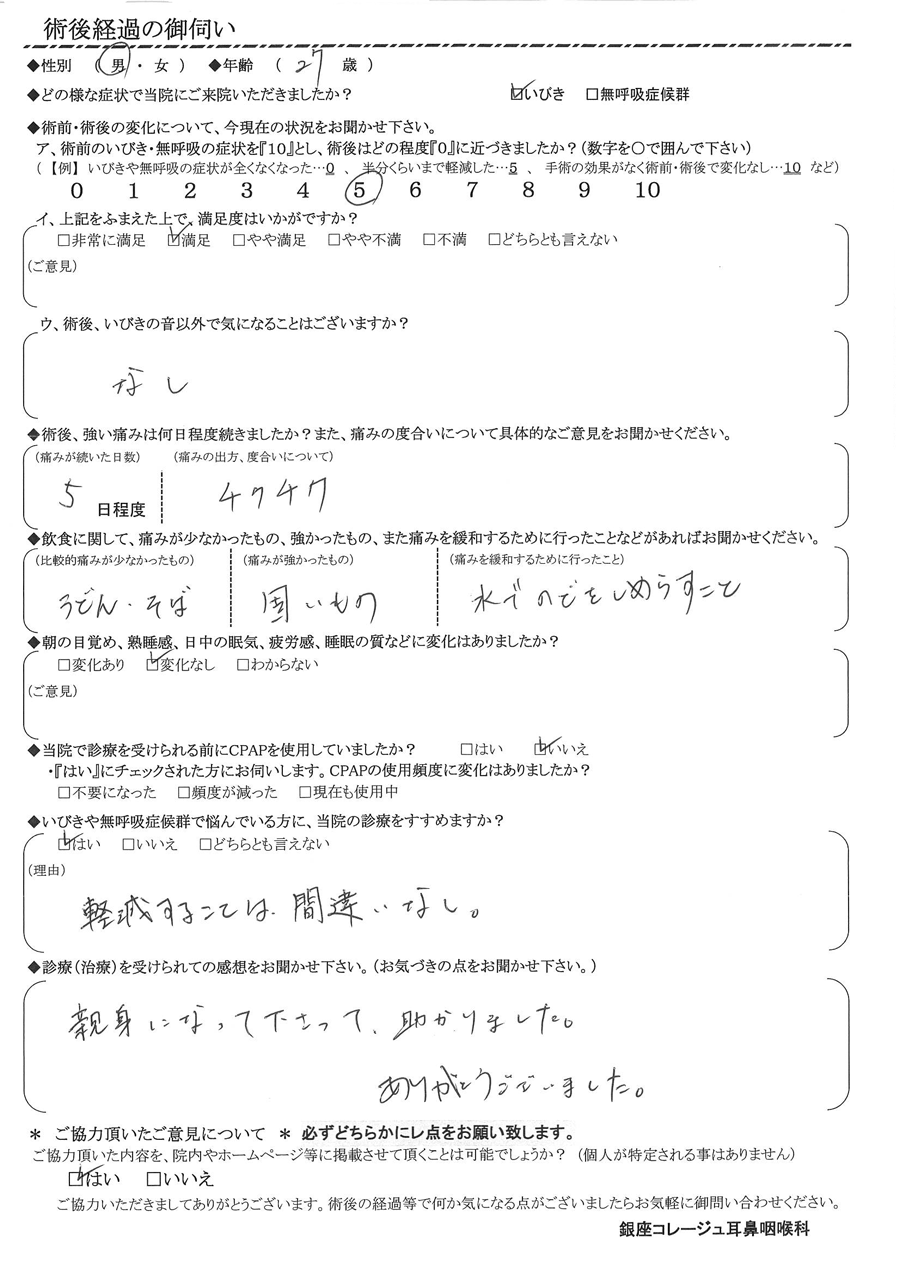 術後経過の御伺い
◆性別 （ 男 ・ 女 ） ◆年齢 （ 27 歳 ）
◆どの様な症状で当院にご来院いただきましたか？ ☑いびき □無呼吸症候群
◆術前・術後の変化について、今現在の状況をお聞かせ下さい。
ア、術前のいびき・無呼吸の症状を『10』とし、術後はどの程度『0』に近づきましたか？（数字を〇で囲んで下さい）
（【例】 いびきや無呼吸の症状が全くなくなった…0 、 半分くらいまで軽減した…5 、 手術の効果がなく術前・術後で変化なし…10 など）
0 1 2 3 4 5 6 7 8 9 10
イ、上記をふまえた上で、満足度はいかがですか？
□非常に満足 ☑満足 □やや満足 □やや不満 □不満 □どちらとも言えない
（ご意見）
ウ、術後、いびきの音以外で気になることはございますか？
なし
◆術後、強い痛みは何日程度続きましたか？また、痛みの度合いについて具体的なご意見をお聞かせください。
（痛みが続いた日数） （痛みの出方、度合いについて）
5 日程度 チクチク
◆飲食に関して、痛みが少なかったもの、強かったもの、また痛みを緩和するために行ったことなどがあればお聞かせください。
（比較的痛みが少なかったもの） （痛みが強かったもの） （痛みを緩和するために行ったこと）
うどん・そば 固いもの 水でのどをしめらすこと
◆朝の目覚め、熟睡感、日中の眠気、疲労感、睡眠の質などに変化はありましたか？
□変化あり ☑変化なし □わからない
（ご意見）
◆当院で診療を受けられる前にCPAPを使用していましたか？ □はい ☑いいえ
・『はい』にチェックされた方にお伺いします。CPAPの使用頻度に変化はありましたか？
□不要になった □頻度が減った □現在も使用中
◆いびきや無呼吸症候群で悩んでいる方に、当院の診療をすすめますか？
☑はい □いいえ □どちらとも言えない
（理由）
軽減することは、間違いなし。
◆診療（治療）を受けられての感想をお聞かせ下さい。（お気づきの点をお聞かせ下さい。）
親身になって下さって、助かりました。
ありがとうございました。
＊ ご協力頂いたご意見について ＊ 必ずどちらかにレ点をお願い致します。
ご協力頂いた内容を、院内やホームページ等に掲載させて頂くことは可能でしょうか？ （個人が特定される事はありません）
☑はい □いいえ
ご協力いただきましてありがとうございます。術後の経過等で何か気になる点がございましたらお気軽に御問い合わせください。
銀座コレージュ耳鼻咽喉科